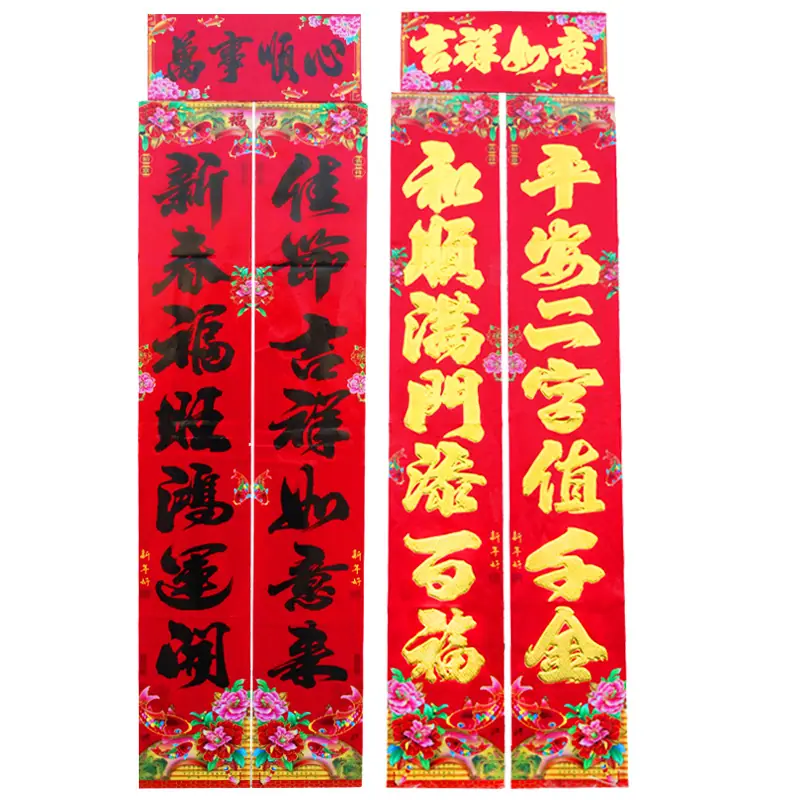 萬事順心
新春福旺鴻運開
佳節吉祥如意来
吉祥如意
和順滿門添百福
平安二字值千金
福
福
新年好
新年好
新年好
新年好